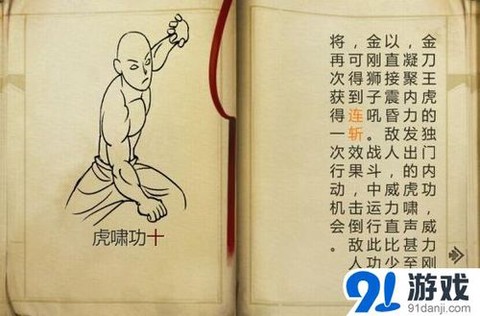 虎啸功十
金刀王虎的独门内功，威力刚
，凝聚内力发出的虎啸声甚至
以直接震昏敌人，威力直比少
金刚狮子吼。战斗中运行此功
，可得到连斩效果，击倒敌人
将再次获得一次行动机会。
91游戏
91danji.com